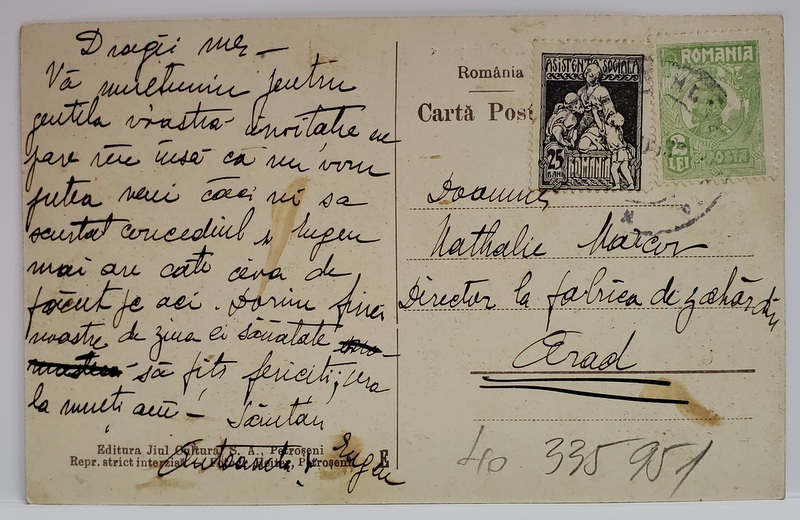 Dragii mei –
Vă mulțumim pentru
gentila voastră invitatie ne
pare rău însă că nu vom
putea veni căci ni sa
scurtat concediul și Eugen
mai are câte ceva de
făcut pe aci. Dorim finei
noastre de ziua ei sănătate
să fiți fericiți; ura
la mulți ani –
Eugen
Editura Jiul Cultura S. A., Petroșeni
Repr. strict interzisă Petroșeni
E
România
Cartă Post
ASISTENȚA SOCIALĂ
25
BANI
ROMANIA
ROMANIA
2
LEI
POSTA
Doamnei
Nathalie Marcov
Director la fabrica de zahăr din
Arad
40 335951